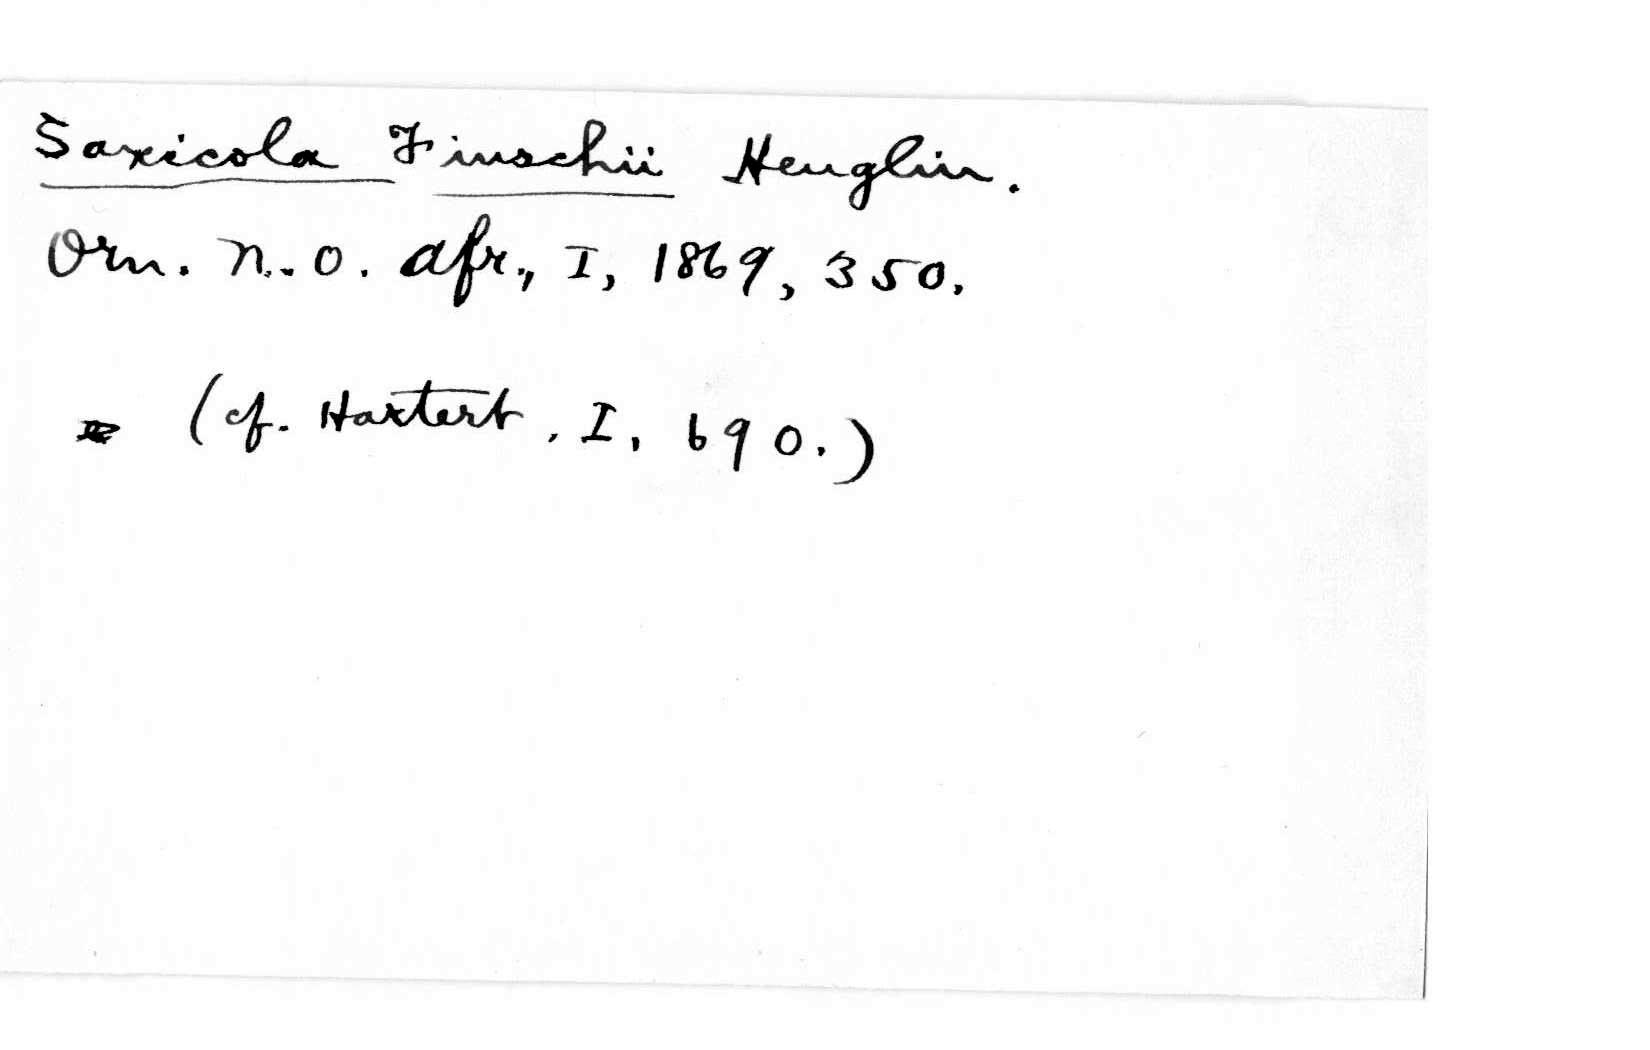 Saxicola Finschii Heuglin.
Orn. N.O. Afr., I, 1869, 350.
(cf. Hartert, I, 690.)